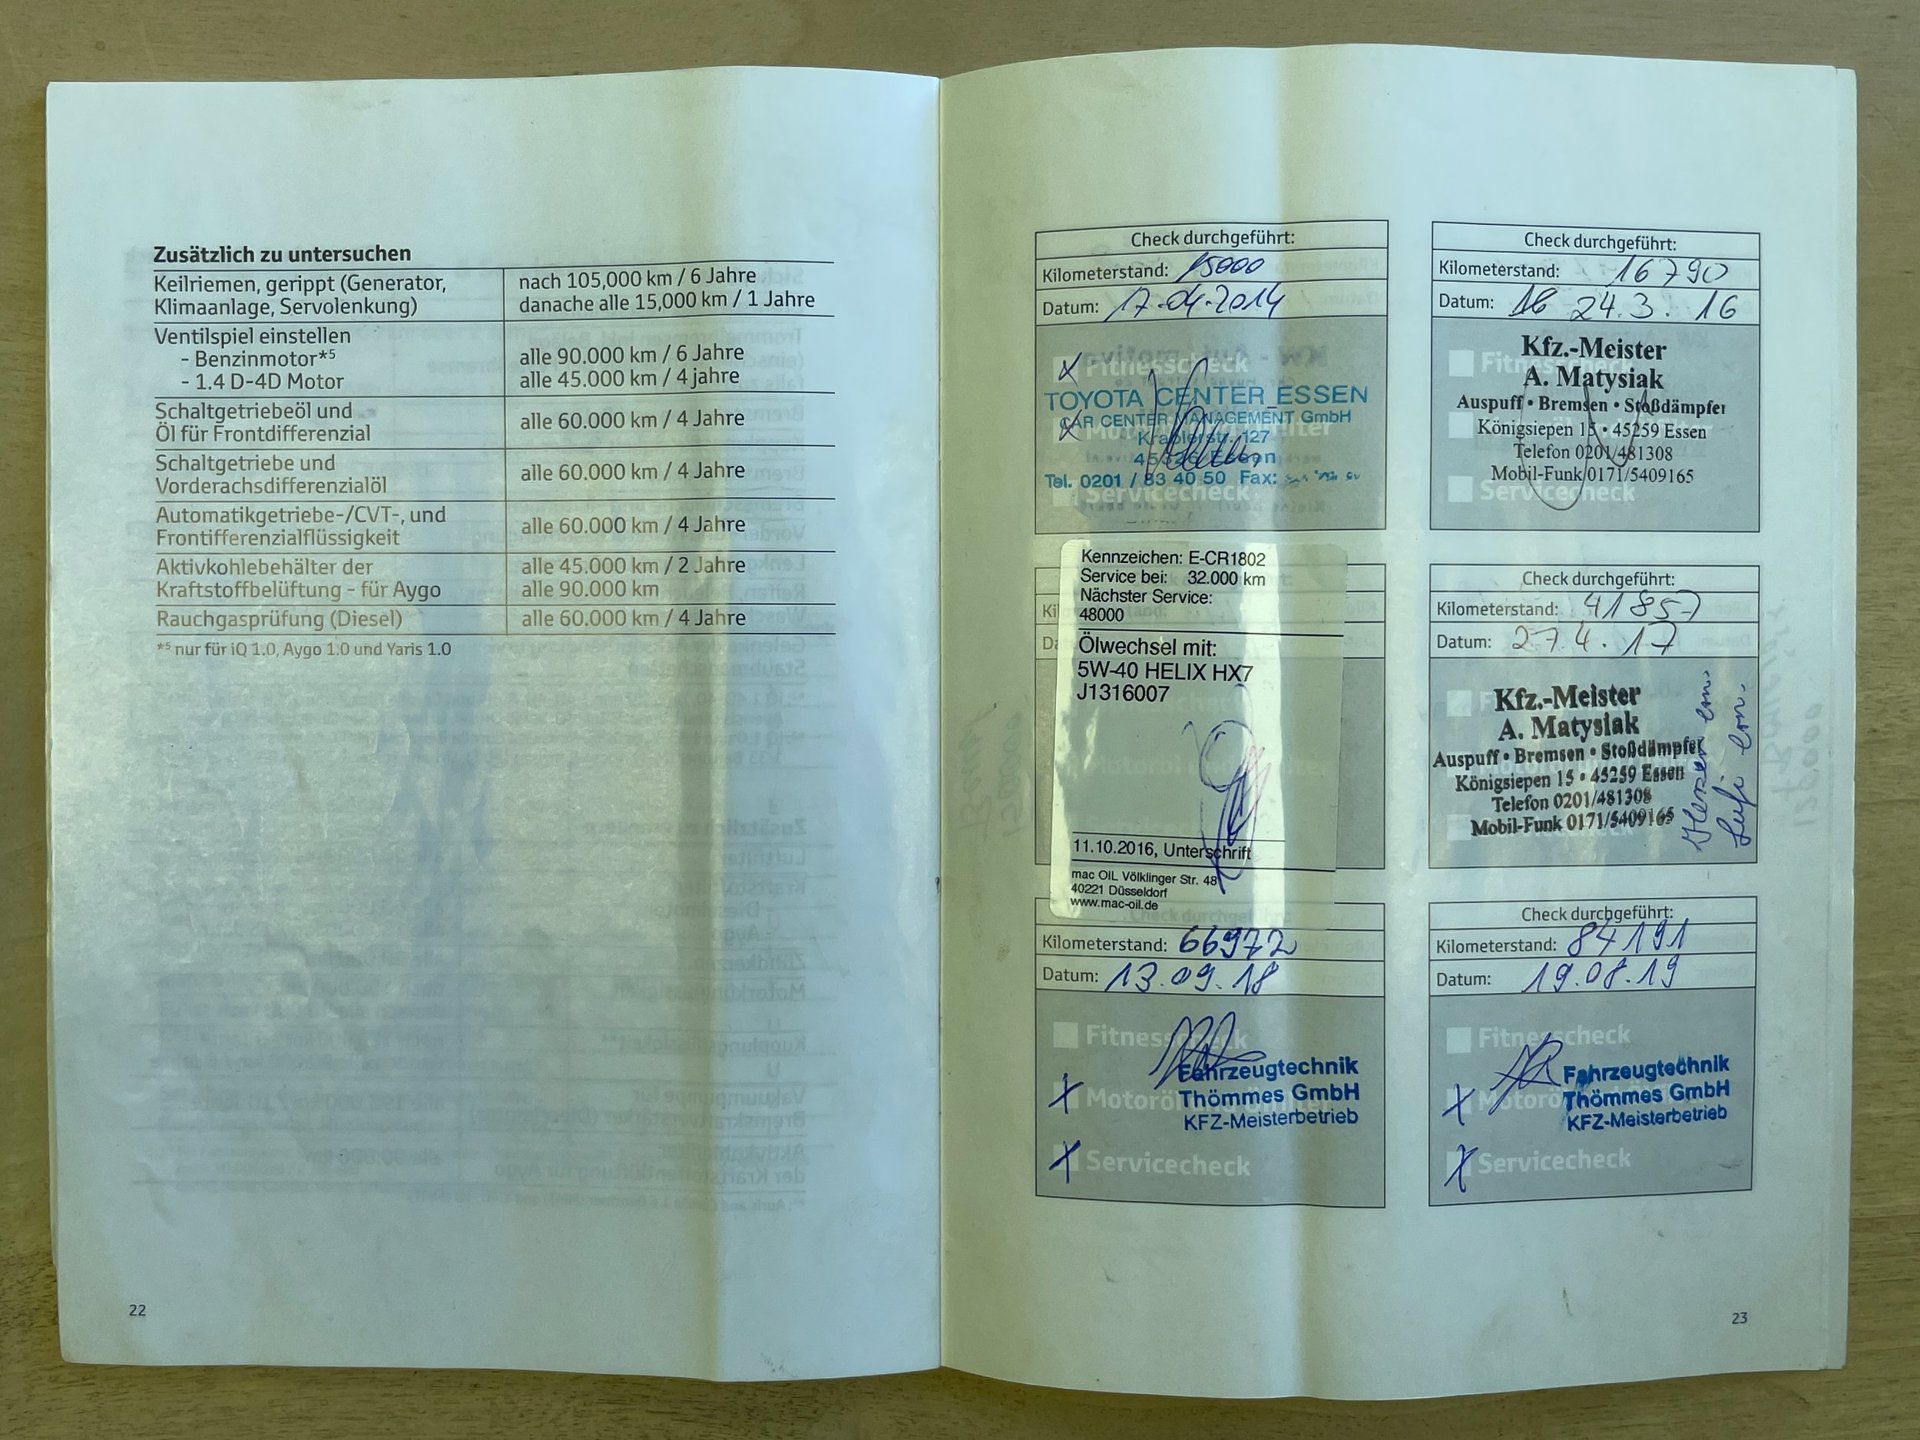 Zusätzlich zu untersuchen
Keilriemen, gerippt (Generator, Klimaanlage, Servolenkung)
nach 105,000 km / 6 Jahre
danache alle 15,000 km / 1 Jahre
Ventilspiel einstellen
- Benzinmotor*5 alle 90.000 km / 6 Jahre
- 1.4 D-4D Motor alle 45.000 km / 4 jahre
Schaltgetriebeöl und
Öl für Frontdifferenzial
alle 60.000 km / 4 Jahre
Schaltgetriebe und
Vorderachsdifferenzialöl
alle 60.000 km / 4 Jahre
Automatikgetriebe-/CVT-, und
Frontifferenzialflüssigkeit
alle 60.000 km / 4 Jahre
Aktivkohlebehälter der
Kraftstoffbelüftung - für Aygo
alle 45.000 km / 2 Jahre
alle 90.000 km
Rauchgasprüfung (Diesel) alle 60.000 km / 4 Jahre
*5 nur für iQ 1.0, Aygo 1.0 und Yaris 1.0
22
Check durchgeführt:
Kilometerstand: 15000
Datum: 17.04.2014
Fitnesscheck
TOYOTA CENTER ESSEN
CAR CENTER MANAGEMENT GmbH
Krablerstr. 127
45326 Essen
Tel. 0201 / 83 40 50 Fax:
Servicecheck
Check durchgeführt:
Kilometerstand: 16790
Datum: 16 24.3.16
Fitnesscheck
Kfz.-Meister
A. Matysiak
Auspuff • Bremsen • Stoßdämpfer
Königsiepen 15 • 45259 Essen
Telefon 0201/481308
Mobil-Funk 0171/5409165
Servicecheck
Kennzeichen: E-CR1802
Service bei: 32.000 km
Nächster Service:
48000
Ölwechsel mit:
5W-40 HELIX HX7
J1316007
11.10.2016, Unterschrift
mac OIL Völklinger Str. 48
40221 Düsseldorf
www.mac-oil.de
Check durchgeführt:
Kilometerstand: 41857
Datum: 27.4.17
Kfz.-Meister
A. Matysiak
Auspuff • Bremsen • Stoßdämpfer
Königsiepen 15 • 45259 Essen
Telefon 0201/481308
Mobil-Funk 0171/5409165
Check durchgeführt:
Kilometerstand: 66972
Datum: 13.09.18
Fitnesscheck
Fahrzeugtechnik
Thömmes GmbH
KFZ-Meisterbetrieb
Servicecheck
Check durchgeführt:
Kilometerstand: 84191
Datum: 19.08.19
Fitnesscheck
Fahrzeugtechnik
Thömmes GmbH
KFZ-Meisterbetrieb
Servicecheck
23